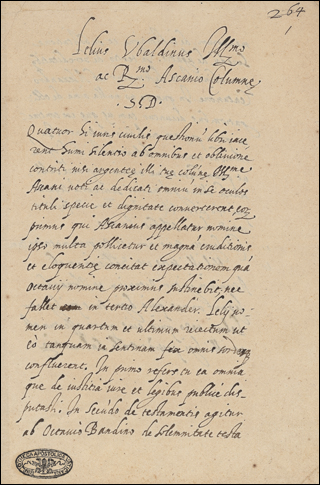 264
Lelius Ubaldinus Ill.mo
ac R.mo Ascanio Columnę
S D
Quatuor hi iuris ciuilis quęstionũ libri iace
rent sumi silencio ab omnibus et obliuione
contriti nisi argenteę illi tuę colũnę Ill.me
Ascani noti ac dedicati omniũ in se oculos
tituli specie et dignitate conuerterent
primus qui Ascanius appellatur nomine
ipso multa pollicetur et magna eruditionis
et eloquentię concitat expectationem quã
Octauij nomine proximus sustinebit, nec
fallet in tertio Alexander. Lelij no
men in quartum et ultimum reiectum ut
eo tanquam in sentinam omnis
confluerent. In primo refers tu ea omnia
que de iustitia iure et legibus publicè dis
putasti. In secũdo de testamentis agitur
ab Octauio Bandino de solemnitate testa